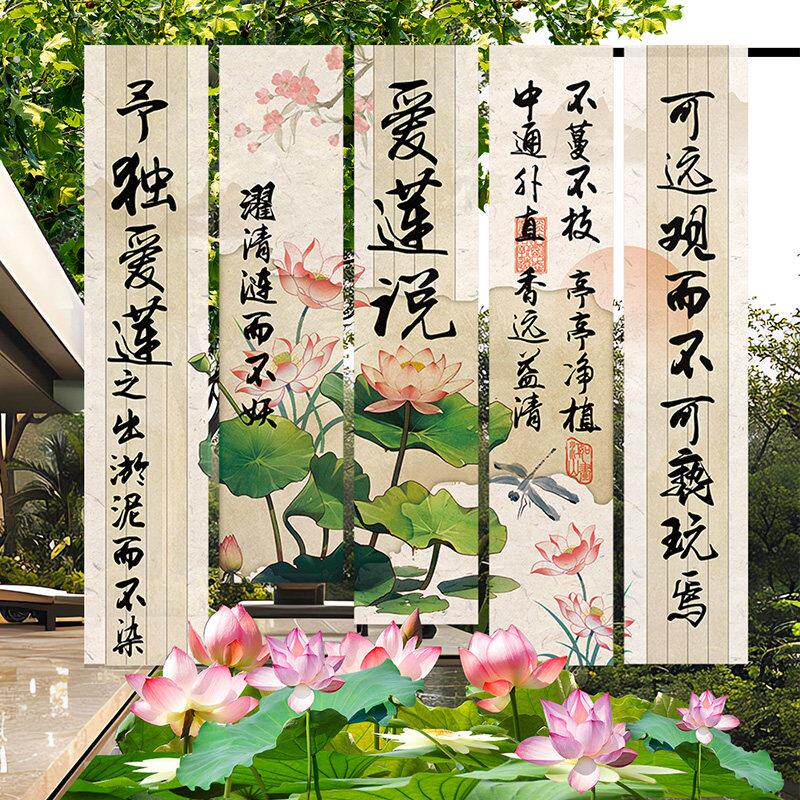 予独爱莲之出淤泥而不染
濯清涟而不妖
爱莲说
中通外直 香远益清
不蔓不枝 亭亭净植
可远观而不可亵玩焉